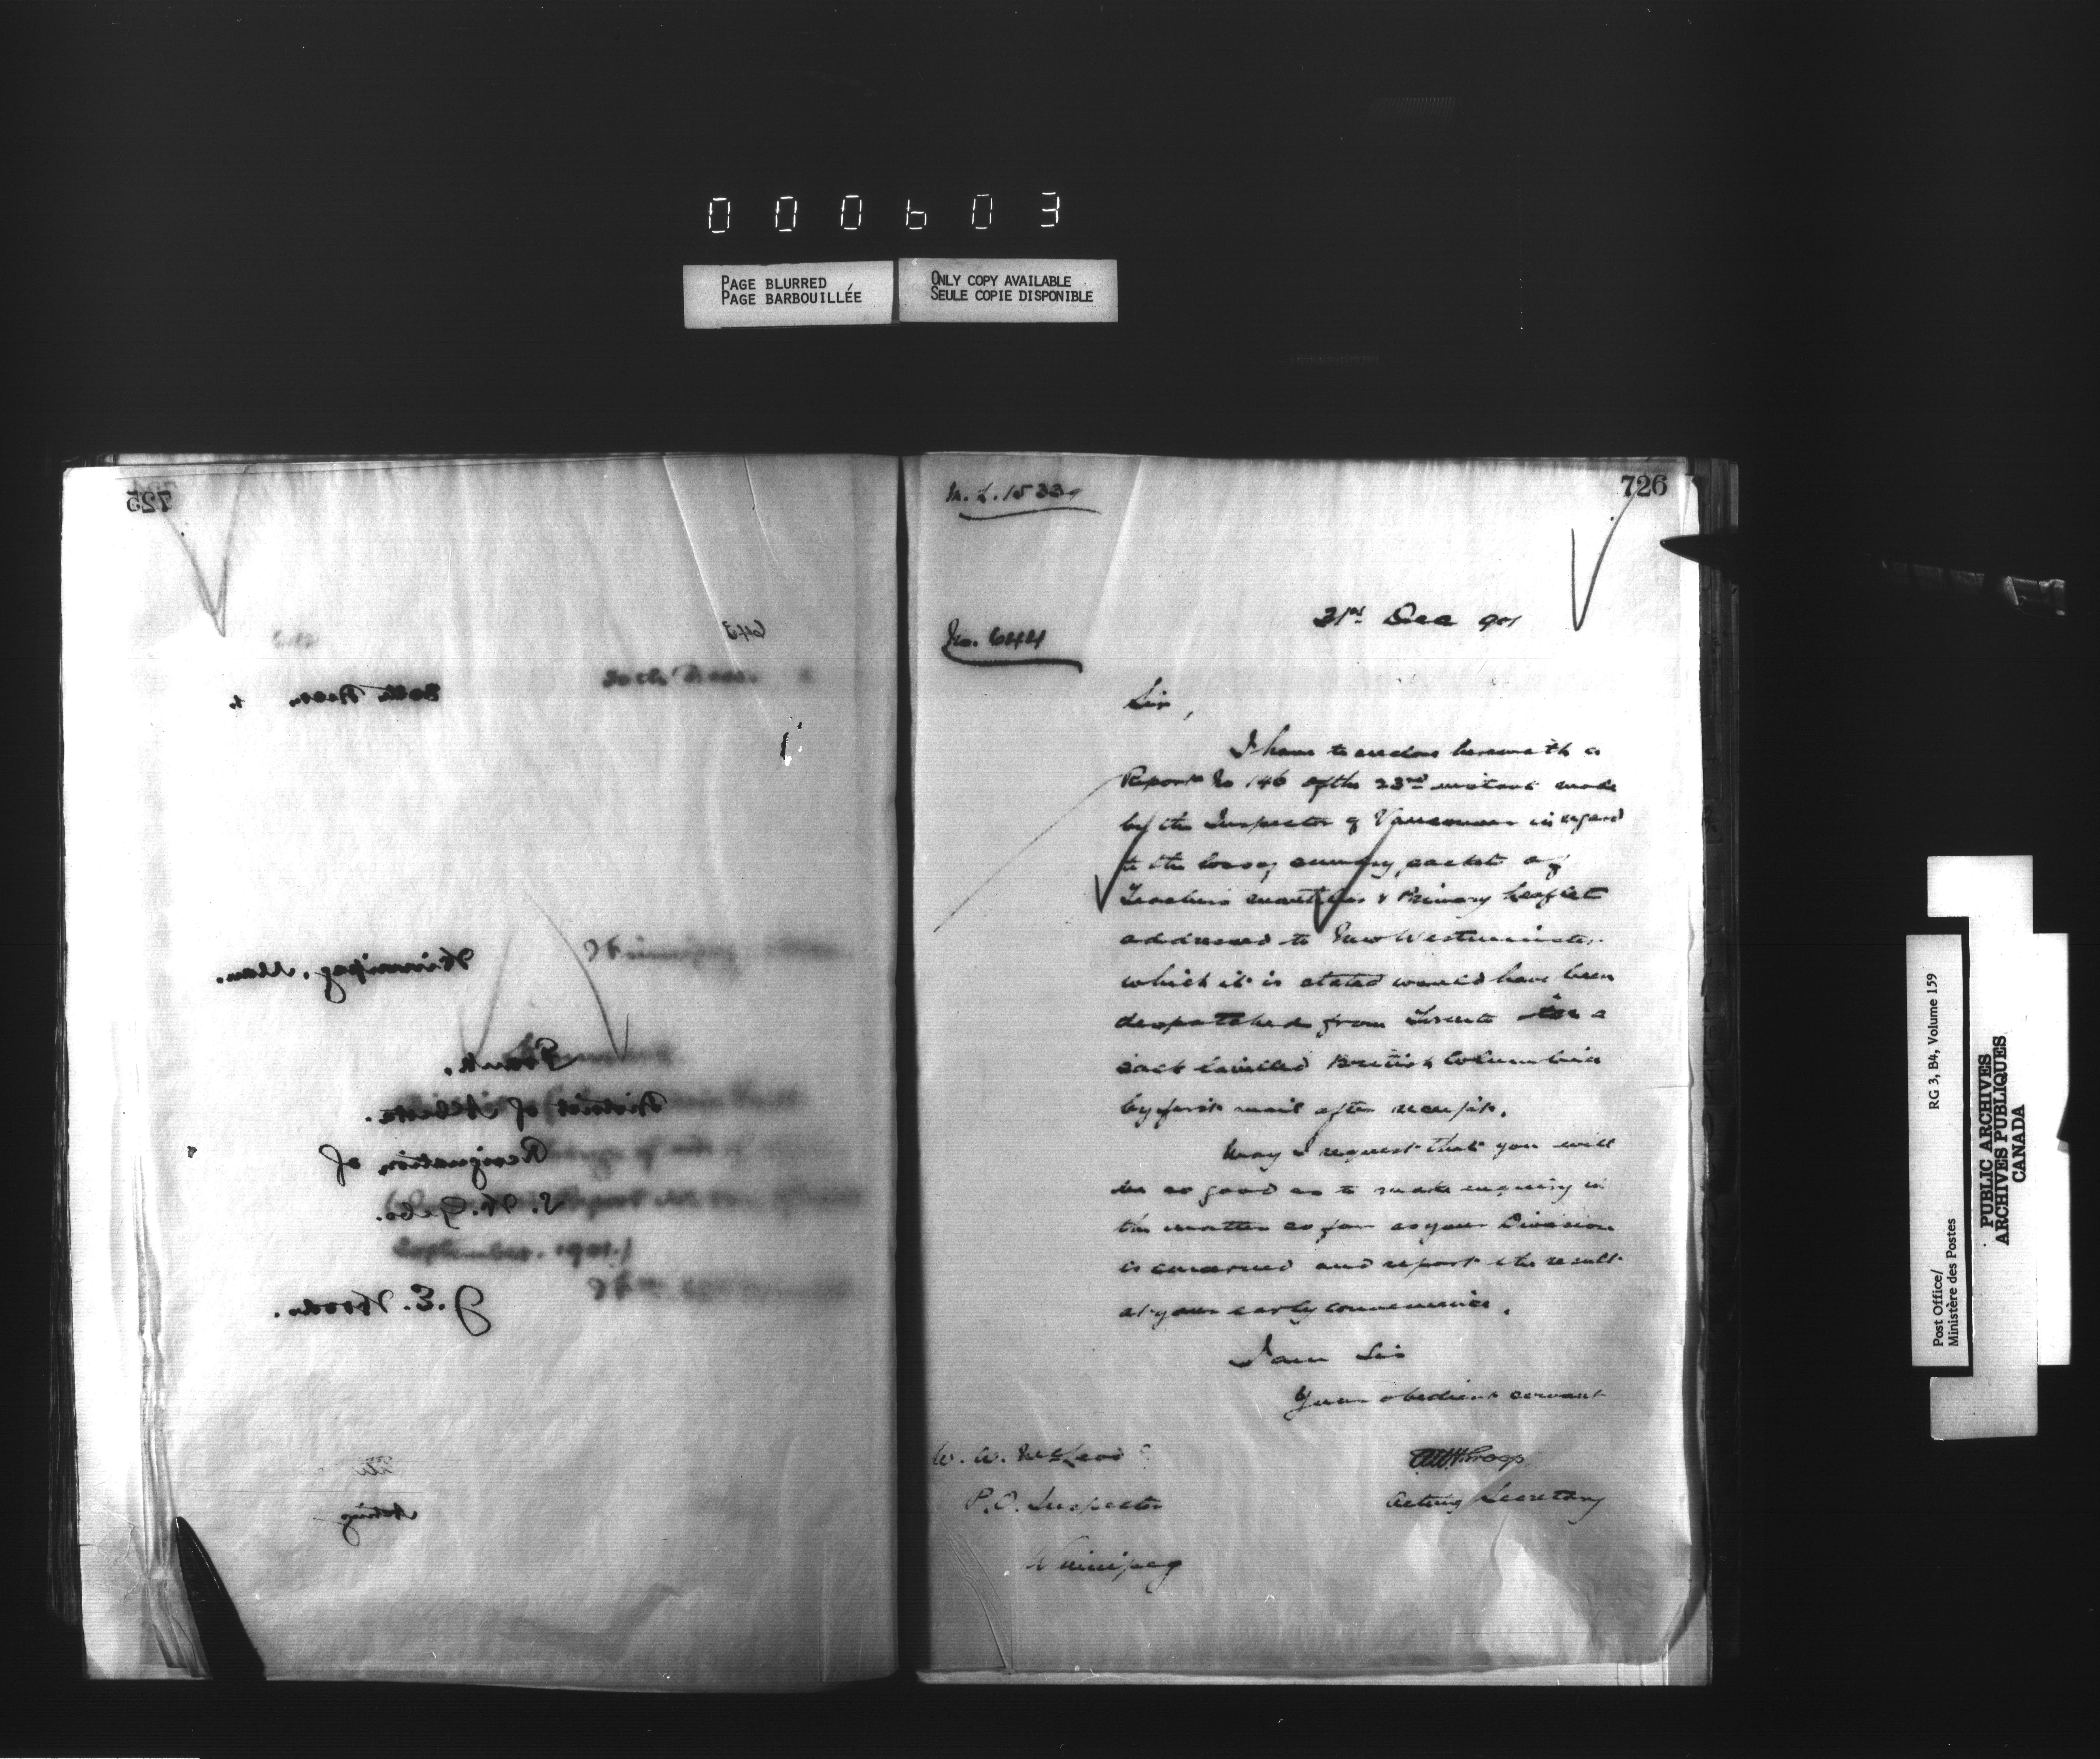 000603
PAGE BLURRED
PAGE BARBOUILLÉE
ONLY COPY AVAILABLE
SEULE COPIE DISPONIBLE
725
643
Winnipeg, Man.
Frank.
District of Alberta.
Resignation of
S. W. Gebo.
September. 1901.)
J. E. Woods.
Acting
726
M. L. 15339
No. 644
31st Dec 901
Sir,
I have to enclose herewith a
Report No 146 of the 23rd instant made
by the Inspector of Vancouver in regard
to the loss of packets of
Teachers & Primary Leaflet
addressed to New Westminster
which it is stated would have been
despatched from Toronto in a
sack labelled British Columbia
by first mail after receipt.
May I request that you will
be so good as to make enquiry in
the matter as far as your Division
is concerned and report the result
at your early convenience.
I am Sir
Your obedient servant
W. W. McLeod
P.O. Inspector
Winnipeg
Acting Secretary
Post Office/
Ministère des Postes
RG 3, B4, Volume 159
PUBLIC ARCHIVES
ARCHIVES PUBLIQUES
CANADA